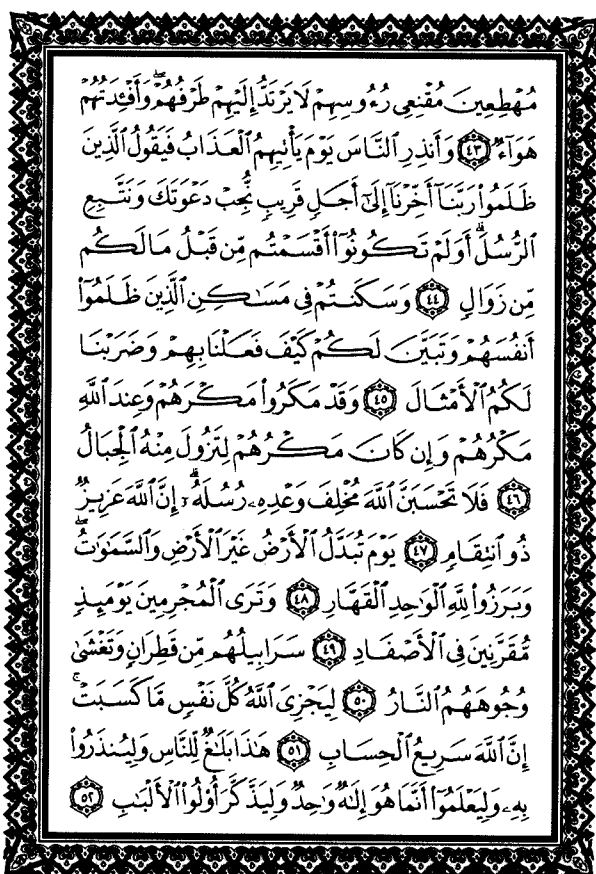 مُهْطِعِينَ مُقْنِعِي رُءُوسِهِمْ لَا يَرْتَدُّ إِلَيْهِمْ طَرْفُهُمْ ۖ وَأَفْـِٔدَتُهُمْ
هَوَآءٌ ٤٣ وَأَنذِرِ ٱلنَّاسَ يَوْمَ يَأْتِيهِمُ ٱلْعَذَابُ فَيَقُولُ ٱلَّذِينَ
ظَلَمُوا۟ رَبَّنَآ أَخِّرْنَآ إِلَىٰٓ أَجَلٍ قَرِيبٍ نُّجِبْ دَعْوَتَكَ وَنَتَّبِعِ
ٱلرُّسُلَ ۗ أَوَلَمْ تَكُونُوٓا۟ أَقْسَمْتُم مِّن قَبْلُ مَا لَكُم
مِّن زَوَالٍ ٤٤ وَسَكَنتُمْ فِى مَسَـٰكِنِ ٱلَّذِينَ ظَلَمُوٓا۟
أَنفُسَهُمْ وَتَبَيَّنَ لَكُمْ كَيْفَ فَعَلْنَا بِهِمْ وَضَرَبْنَا
لَكُمُ ٱلْأَمْثَالَ ٤٥ وَقَدْ مَكَرُوا۟ مَكْرَهُمْ وَعِندَ ٱللَّهِ
مَكْرُهُمْ وَإِن كَانَ مَكْرُهُمْ لِتَزُولَ مِنْهُ ٱلْجِبَالُ
٤٦ فَلَا تَحْسَبَنَّ ٱللَّهَ مُخْلِفَ وَعْدِهِۦ رُسُلَهُۥٓ ۗ إِنَّ ٱللَّهَ عَزِيزٌ
ذُو ٱنتِقَامٍ ٤٧ يَوْمَ تُبَدَّلُ ٱلْأَرْضُ غَيْرَ ٱلْأَرْضِ وَٱلسَّمَـٰوَٰتُ ۖ
وَبَرَزُوا۟ لِلَّهِ ٱلْوَٰحِدِ ٱلْقَهَّارِ ٤٨ وَتَرَى ٱلْمُجْرِمِينَ يَوْمَئِذٍ
مُّقَرَّنِينَ فِى ٱلْأَصْفَادِ ٤٩ سَرَابِيلُهُم مِّن قَطِرَانٍ وَتَغْشَىٰ
وُجُوهَهُمُ ٱلنَّارُ ٥٠ لِيَجْزِىَ ٱللَّهُ كُلَّ نَفْسٍ مَّا كَسَبَتْ ۚ
إِنَّ ٱللَّهَ سَرِيعُ ٱلْحِسَابِ ٥١ هَـٰذَا بَلَـٰغٌ لِّلنَّاسِ وَلِيُنذَرُوا۟
بِهِۦ وَلِيَعْلَمُوٓا۟ أَنَّمَا هُوَ إِلَـٰهٌ وَٰحِدٌ وَلِيَذَّكَّرَ أُو۟لُوا۟ ٱلْأَلْبَـٰبِ ٥٢